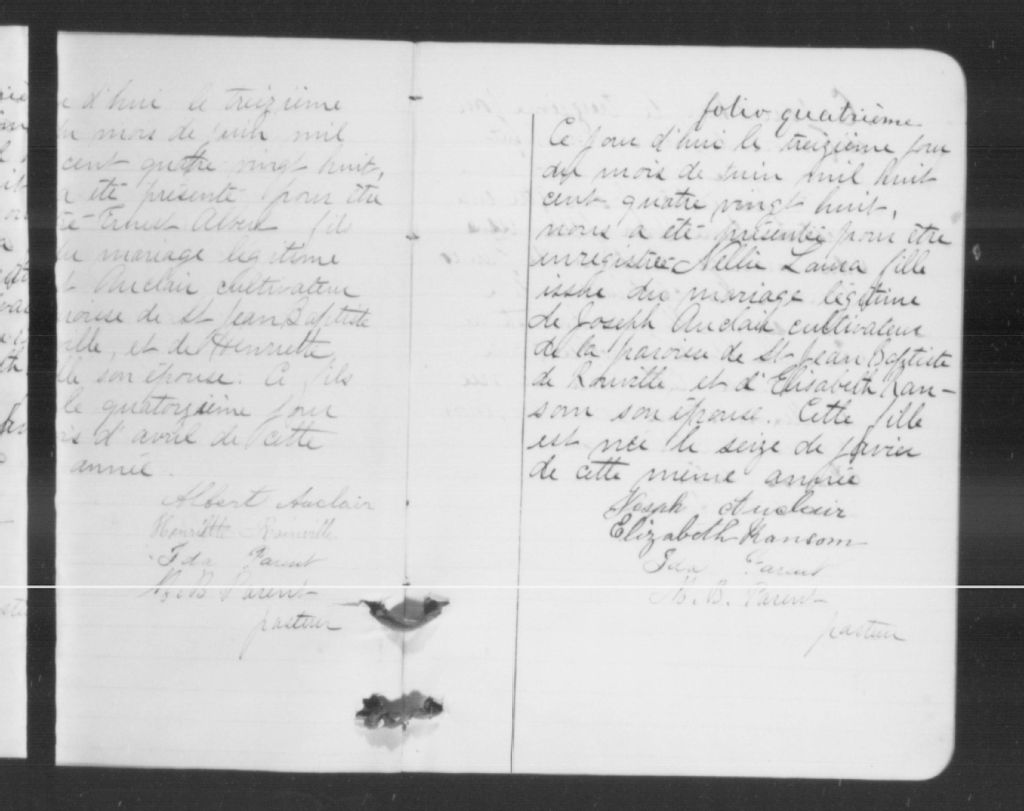 d'hui le treizième
du mois de juin mil
cent quatre vingt huit,
a été présenté pour être
Ernest Albert fils
du mariage légitime
Auclair cultivateur
paroisse de St Jean Baptiste
ville, et de Henriette
son épouse. Ce fils
le quatorzième jour
d'avril de cette
année.
Albert Auclair
Henriette Rainville
Ida Parent
M. B. Parent
pasteur
folio quatrième
Ce jour d'hui le treizième jour
du mois de Juin mil huit
cent quatre vingt huit,
nous a été présentée pour être
enregistrée Nellie Laura fille
issue du mariage légitime
de Joseph Auclair cultivateur
de la paroisse de St Jean Baptiste
de Rouville et d'Elisabeth Ran-
som son épouse. Cette fille
est née le seize de janvier
de cette même année
Joseph Auclair
Elizabeth Ransom
Ida Parent
M. B. Parent
pasteur